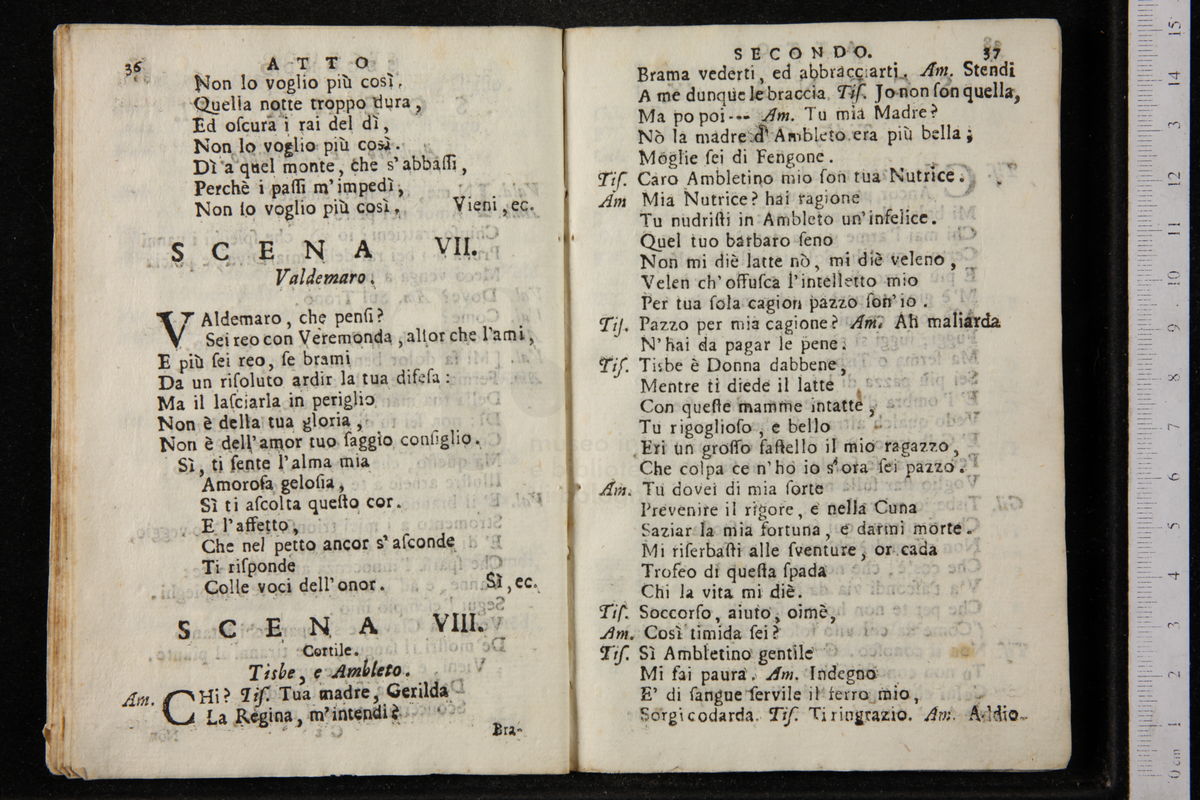 36 ATTO
Non lo voglio più così.
Quella notte troppo dura,
Ed oſcura i rai del dì,
Non lo voglio più così.
Dì a quel monte, che s'abbaſſi,
Perchè i paſſi m'impedì,
Non lo voglio più così. Vieni, ec.
SCENA VII.
Valdemaro.
VAldemaro, che penſi?
Sei reo con Veremonda, allor che l'ami,
E più ſei reo, ſe brami
Da un riſoluto ardir la tua difeſa:
Ma il laſciarla in periglio
Non è della tua gloria,
Non è dell'amor tuo ſaggio conſiglio.
Sì, ti ſente l'alma mia
Amoroſa geloſia,
Sì ti aſcolta queſto cor.
E l'affetto,
Che nel petto ancor s'aſconde
Ti riſponde
Colle voci dell'onor. Sì, ec.
SCENA VIII.
Cortile.
Tisbe, e Ambleto.
Am. CHi? Tiſ. Tua madre, Gerilda
La Regina, m'intendi?
Bra-
SECONDO. 37
Brama vederti, ed abbracciarti. Am. Stendi
A me dunque le braccia. Tiſ. Jo non ſon quella,
Ma po poi --- Am. Tu mia Madre?
Nò la madre d'Ambleto era più bella;
Moglie ſei di Fengone.
Tiſ. Caro Ambletino mio ſon tua Nutrice.
Am Mia Nutrice? hai ragione
Tu nudriſti in Ambleto un'infelice.
Quel tuo barbaro ſeno
Non mi diè latte nò, mi diè veleno,
Velen ch'offuſca l'intelletto mio
Per tua ſola cagion pazzo ſon'io.
Tiſ. Pazzo per mia cagione? Am. Ah maliarda
N'hai da pagar le pene.
Tiſ. Tisbe è Donna dabbene,
Mentre ti diede il latte
Con queſte mamme intatte,
Tu rigoglioſo, e bello
Eri un groſſo faſtello il mio ragazzo,
Che colpa ce n'ho io s'ora ſei pazzo.
Am. Tu dovei di mia ſorte
Prevenire il rigore, e nella Cuna
Saziar la mia fortuna, e darmi morte.
Mi riſerbaſti alle ſventure, or cada
Trofeo di queſta ſpada
Chi la vita mi diè.
Tiſ. Soccorſo, aiuto, oimè,
Am. Così timida ſei?
Tiſ. Sì Ambletino gentile
Mi fai paura. Am. Indegno
E' di ſangue ſervile il ferro mio,
Sorgi codarda. Tiſ. Ti ringrazio. Am. Addio.